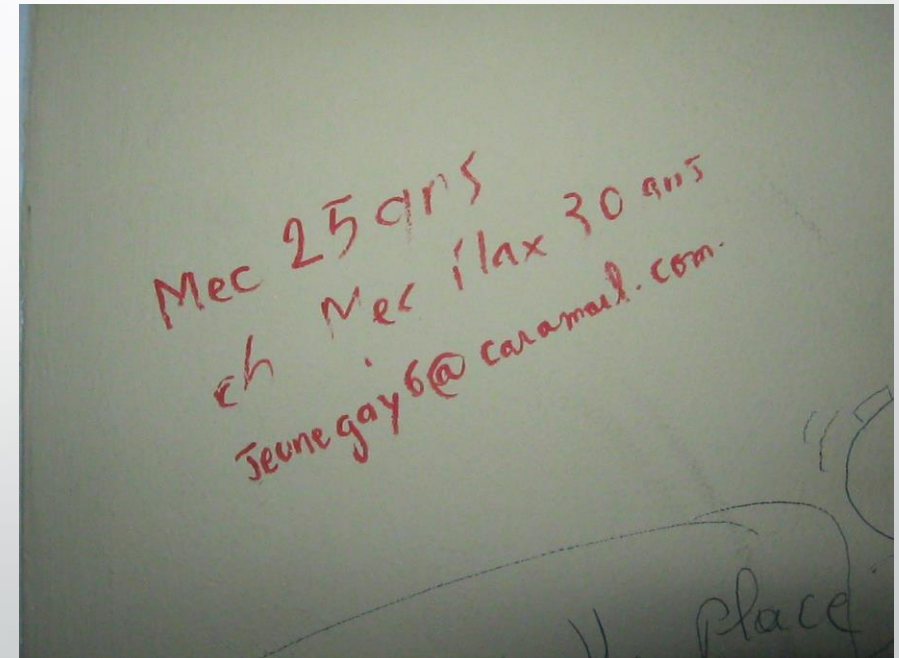 Mec 25 ans
ch Mec max 30 ans
Jeunegay6@caramail.com
Place